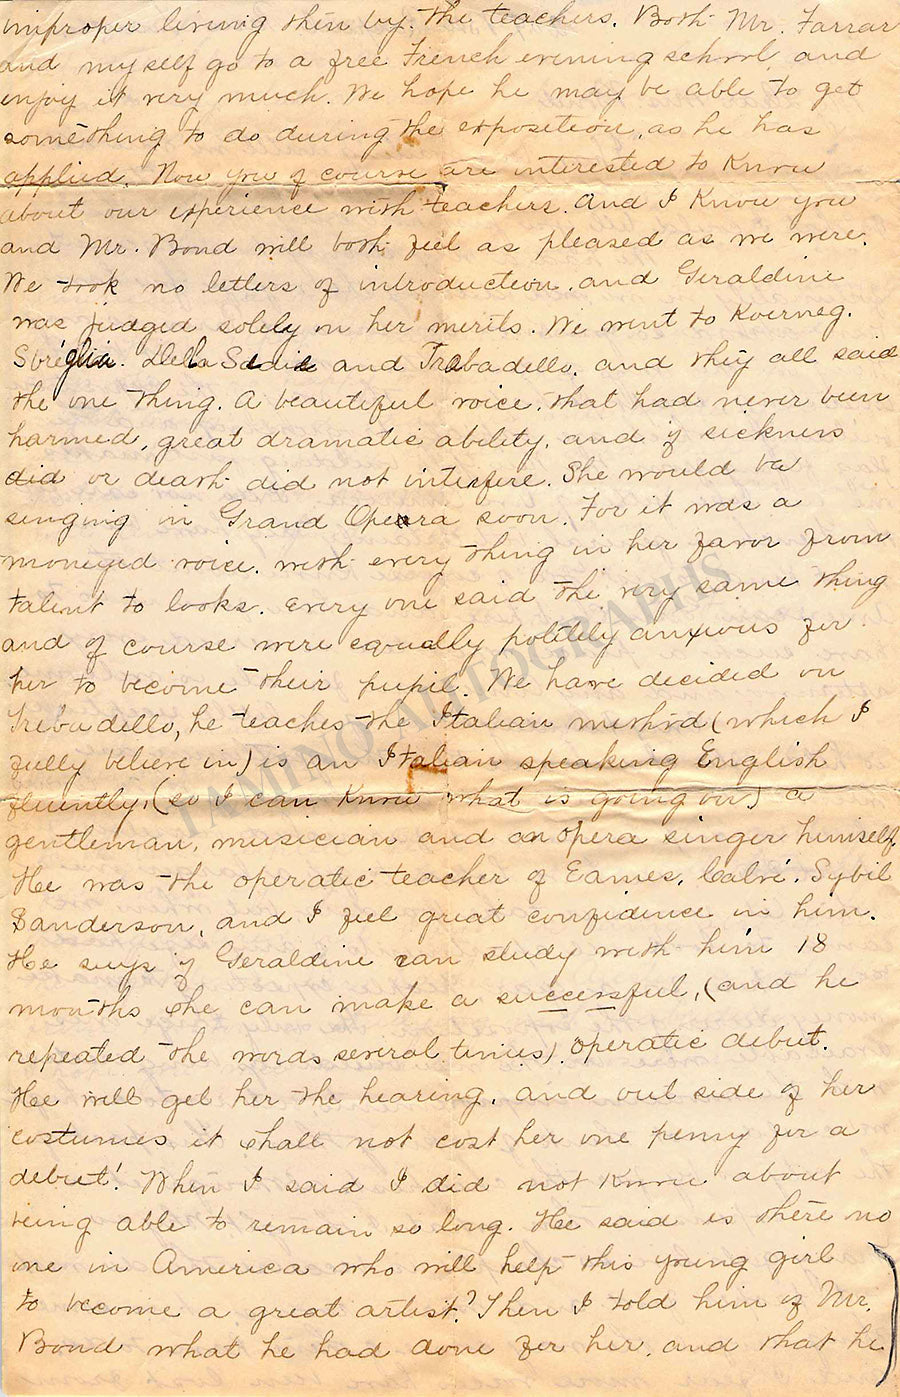 improper living then by the teachers. Both Mr. Farrar
and myself go to a free French evening school, and
enjoy it very much. We hope he may be able to get
something to do during the exposition, as he has
applied. Now you of course are interested to know
about our experience with teachers. And I know you
and Mr. Bond will both feel as pleased as we were.
We took no letters of introduction, and Geraldine
was judged solely on her merits. We went to Koerneg.
Sbriglia. Della Sedie and Trabadello, and they all said
the one thing. A beautiful voice, that had never been
harmed, great dramatic ability, and if sickness
did or death did not interfere. She would be
singing in Grand Opera soon. For it was a
moneyed voice. with every thing in her favor from
talent to looks. Every one said the very same thing
and of course were equally politely anxious for
her to become their pupil. We have decided on
Trebadello, he teaches the Italian method (which I
fully believe in) is an Italian speaking English
fluently, (so I can know what is going on) a
gentleman, musician and an opera singer himself.
He was the operatic teacher of Eames, Calvé. Sybil
Sanderson, and I feel great confidence in him.
He says if Geraldine can study with him 18
months she can make a successful, (and he
repeated the words several times) operatic debut.
He will get her the hearing, and out side of her
costumes it shall not cost her one penny for a
debut! When I said I did not know about
being able to remain so long. He said is there no
one in America who will help this young girl
to become a great artist? Then I told him of Mr.
Bond what he had done for her, and that he
TAMINO AUTOGRAPHS